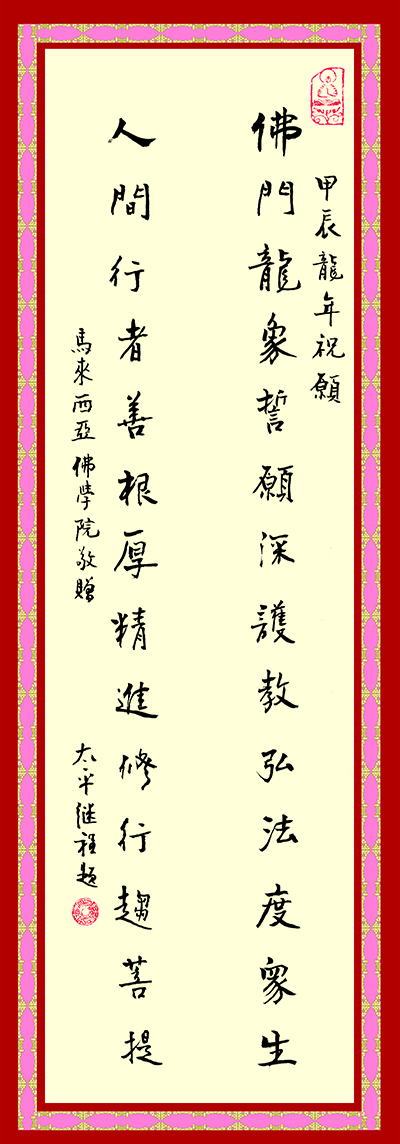 甲辰龍年祝願
佛門龍象誓願深護教弘法度衆生
人間行者善根厚精進修行趨菩提
馬來西亞佛學院敬贈
太平继程題